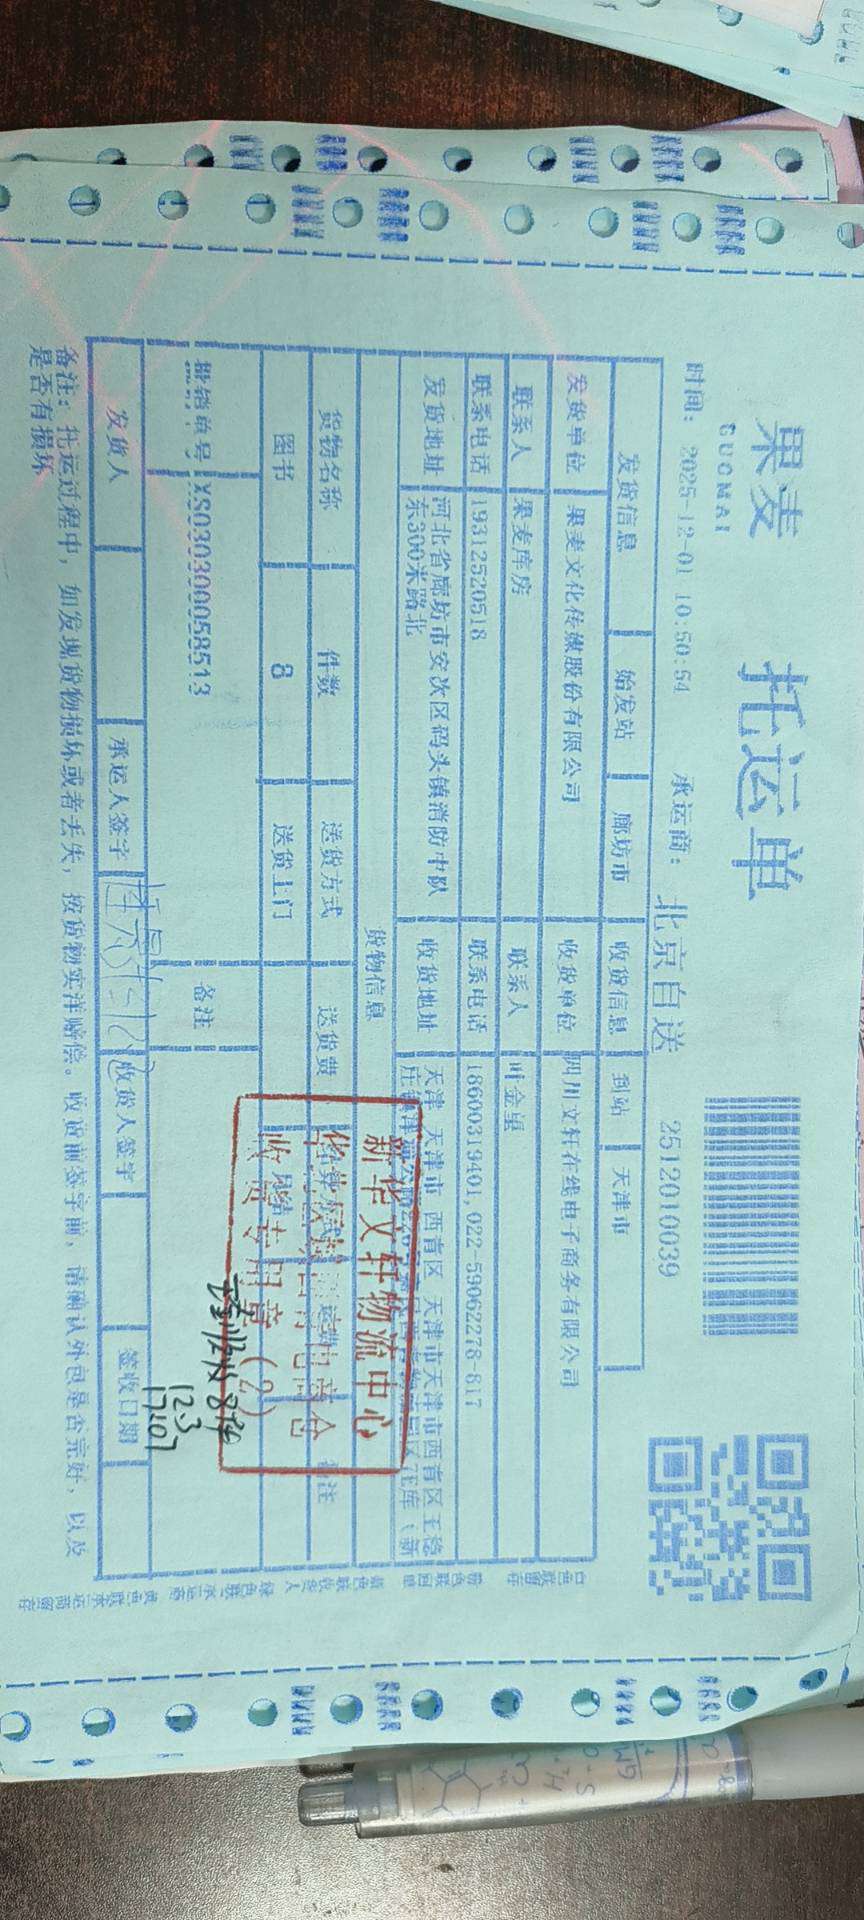 果麦
GUOMAI
托运单
时间: 2025-12-01 10:50:54 承运商: 北京自送 2512010039
发货信息 始发站 廊坊市 收货信息 到站 天津市
发货单位 果麦文化传媒股份有限公司 收货单位 四川文轩在线电子商务有限公司
联系人 果麦库房 联系人 叶金星
联系电话 19312520518 联系电话 18600319401,022-59062278-817
发货地址 河北省廊坊市安次区码头镇消防中队 收货地址 天津 天津市 西青区 天津市天津市西青区王稳
东300米路北 庄镇津
货物信息
货物名称 件数 送货方式 送货费 备注
图书 8 送货上门
新华文轩物流中心
收货专用章(2)
XS0303000058513 备注
12.3
17:07
发货人 承运人签字 收货人签字 签收日期
备注: 托运过程中, 如发现货物损坏或者丢失, 按货物实洋赔偿。收货前签字前, 请确认外包是否完好, 以及
是否有损坏